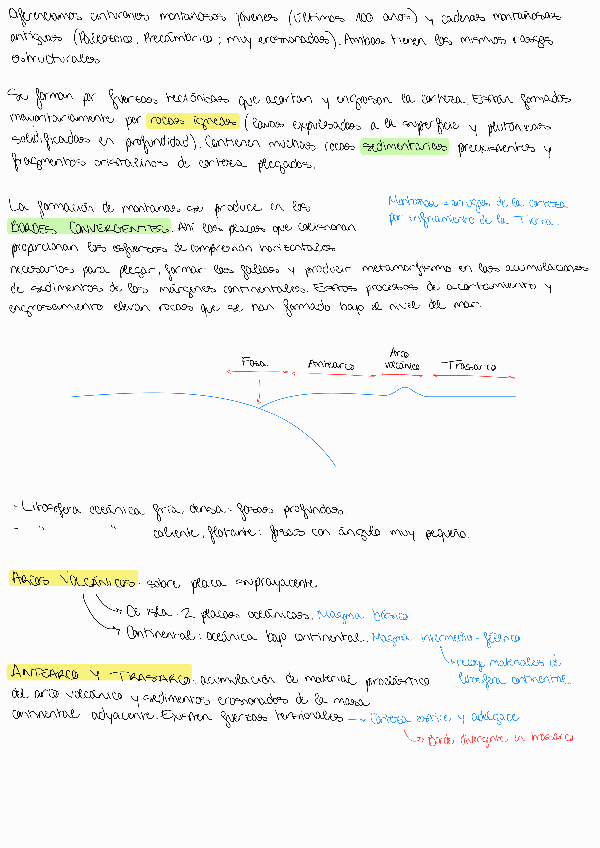 Diferenciamos cinturones montañosos jóvenes (últimos 100 años) y cadenas montañosas
antiguas (Paleozoico, Precámbrico; muy erosionadas). Ambas tienen los mismos rasgos
estructurales.
Se forman por fuerzas tectónicas que acortan y engrosan la corteza. Están formados
mayoritariamente por rocas ígneas (lavas expulsadas a la superficie y plutónicas
solidificadas en profundidad). Contienen muchas rocas sedimentarias preexistentes y
fragmentos cristalinos de corteza plegados.
La formación de montañas se produce en los
BORDES CONVERGENTES. Ahí las placas que colisionan
proporcionan los esfuerzos de compresión horizontales
necesarios para plegar, formar las fallas y producir metamorfismo en las acumulaciones
de sedimentos de los márgenes continentales. Estos procesos de acortamiento y
engrosamiento elevan rocas que se han formado bajo el nivel del mar.
Montañas = arrugas de la corteza
por enfriamiento de la Tierra.
Fosa Antearco Arco
volcánico Trasarco
- Litosfera oceánica fría, densa: fosas profundas.
- " " caliente, flotante: fosas con ángulo muy pequeño.
ARCOS VOLCÁNICOS: sobre placa suprayacente.
De isla: 2 placas oceánicas. Magma básico
Continental: oceánica bajo continental. Magma intermedio-félsico
recoge materiales de
litosfera continental.
ANTEARCO Y TRASARCO: acumulación de material piroclástico
del arco volcánico y sedimentos erosionados de la masa
continental adyacente. Existen fuerzas tensionales → Corteza estire y adelgace
Borde divergente en trasarco